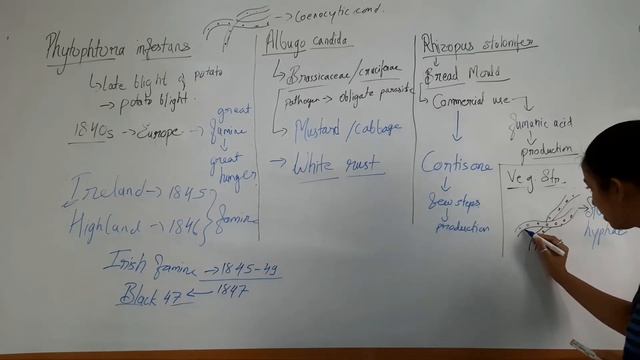 → Coenocytic cond.
Phytophtora infestans
↳ late blight of potato
→ potato blight.
1840s → Europe → great famine
↓
great hunger
Ireland → 1845
Highland → 1846 } famine
Irish famine → 1845-49
Black 47 ← 1847
Albugo candida
↳ Brassicaceae/cruciferae
pathogen → obligate parasite
Mustard/Cabbage
→ White rust
Rhizopus stolonifer
↓
Bread Mould
↳ Commercial use →
fumaric acid
↓
production
Cortisone
↓
few steps
↳ production
Veg Str.
hyphae